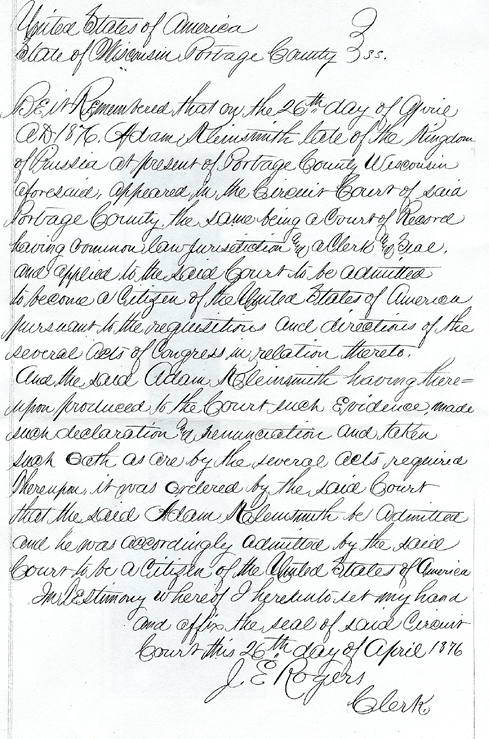 United States of America
State of Wisconsin Portage County } ss.
BE it Remembered that on the 26th day of April
A.D. 1876. Adam Kleinsmith late of the Kingdom
of Prussia at present of Portage County Wisconsin
aforesaid, appeared in the Circuit Court of said
Portage County, the same being a Court of Record
having common law jurisdiction & a Clerk & Seal.
and applied to the said Court to be admitted
to become a Citizen of the United States of America
pursuant to the requisitions and directions of the
several Acts of Congress in relation thereto.
And the said Adam Kleinsmith having there=
upon produced to the Court such Evidence, made
such declaration & renunciation and taken
such Oath as are by the several acts required
Thereupon, it was ordered by the said Court
that the said Adam Kleinsmith be admitted
and he was accordingly admitted by the said
Court to be a Citizen of the United States of America
In Testimony whereof I hereunto set my hand
and affix the seal of said Circuit
Court this 26th day of April 1876
J. E. Rogers
Clerk